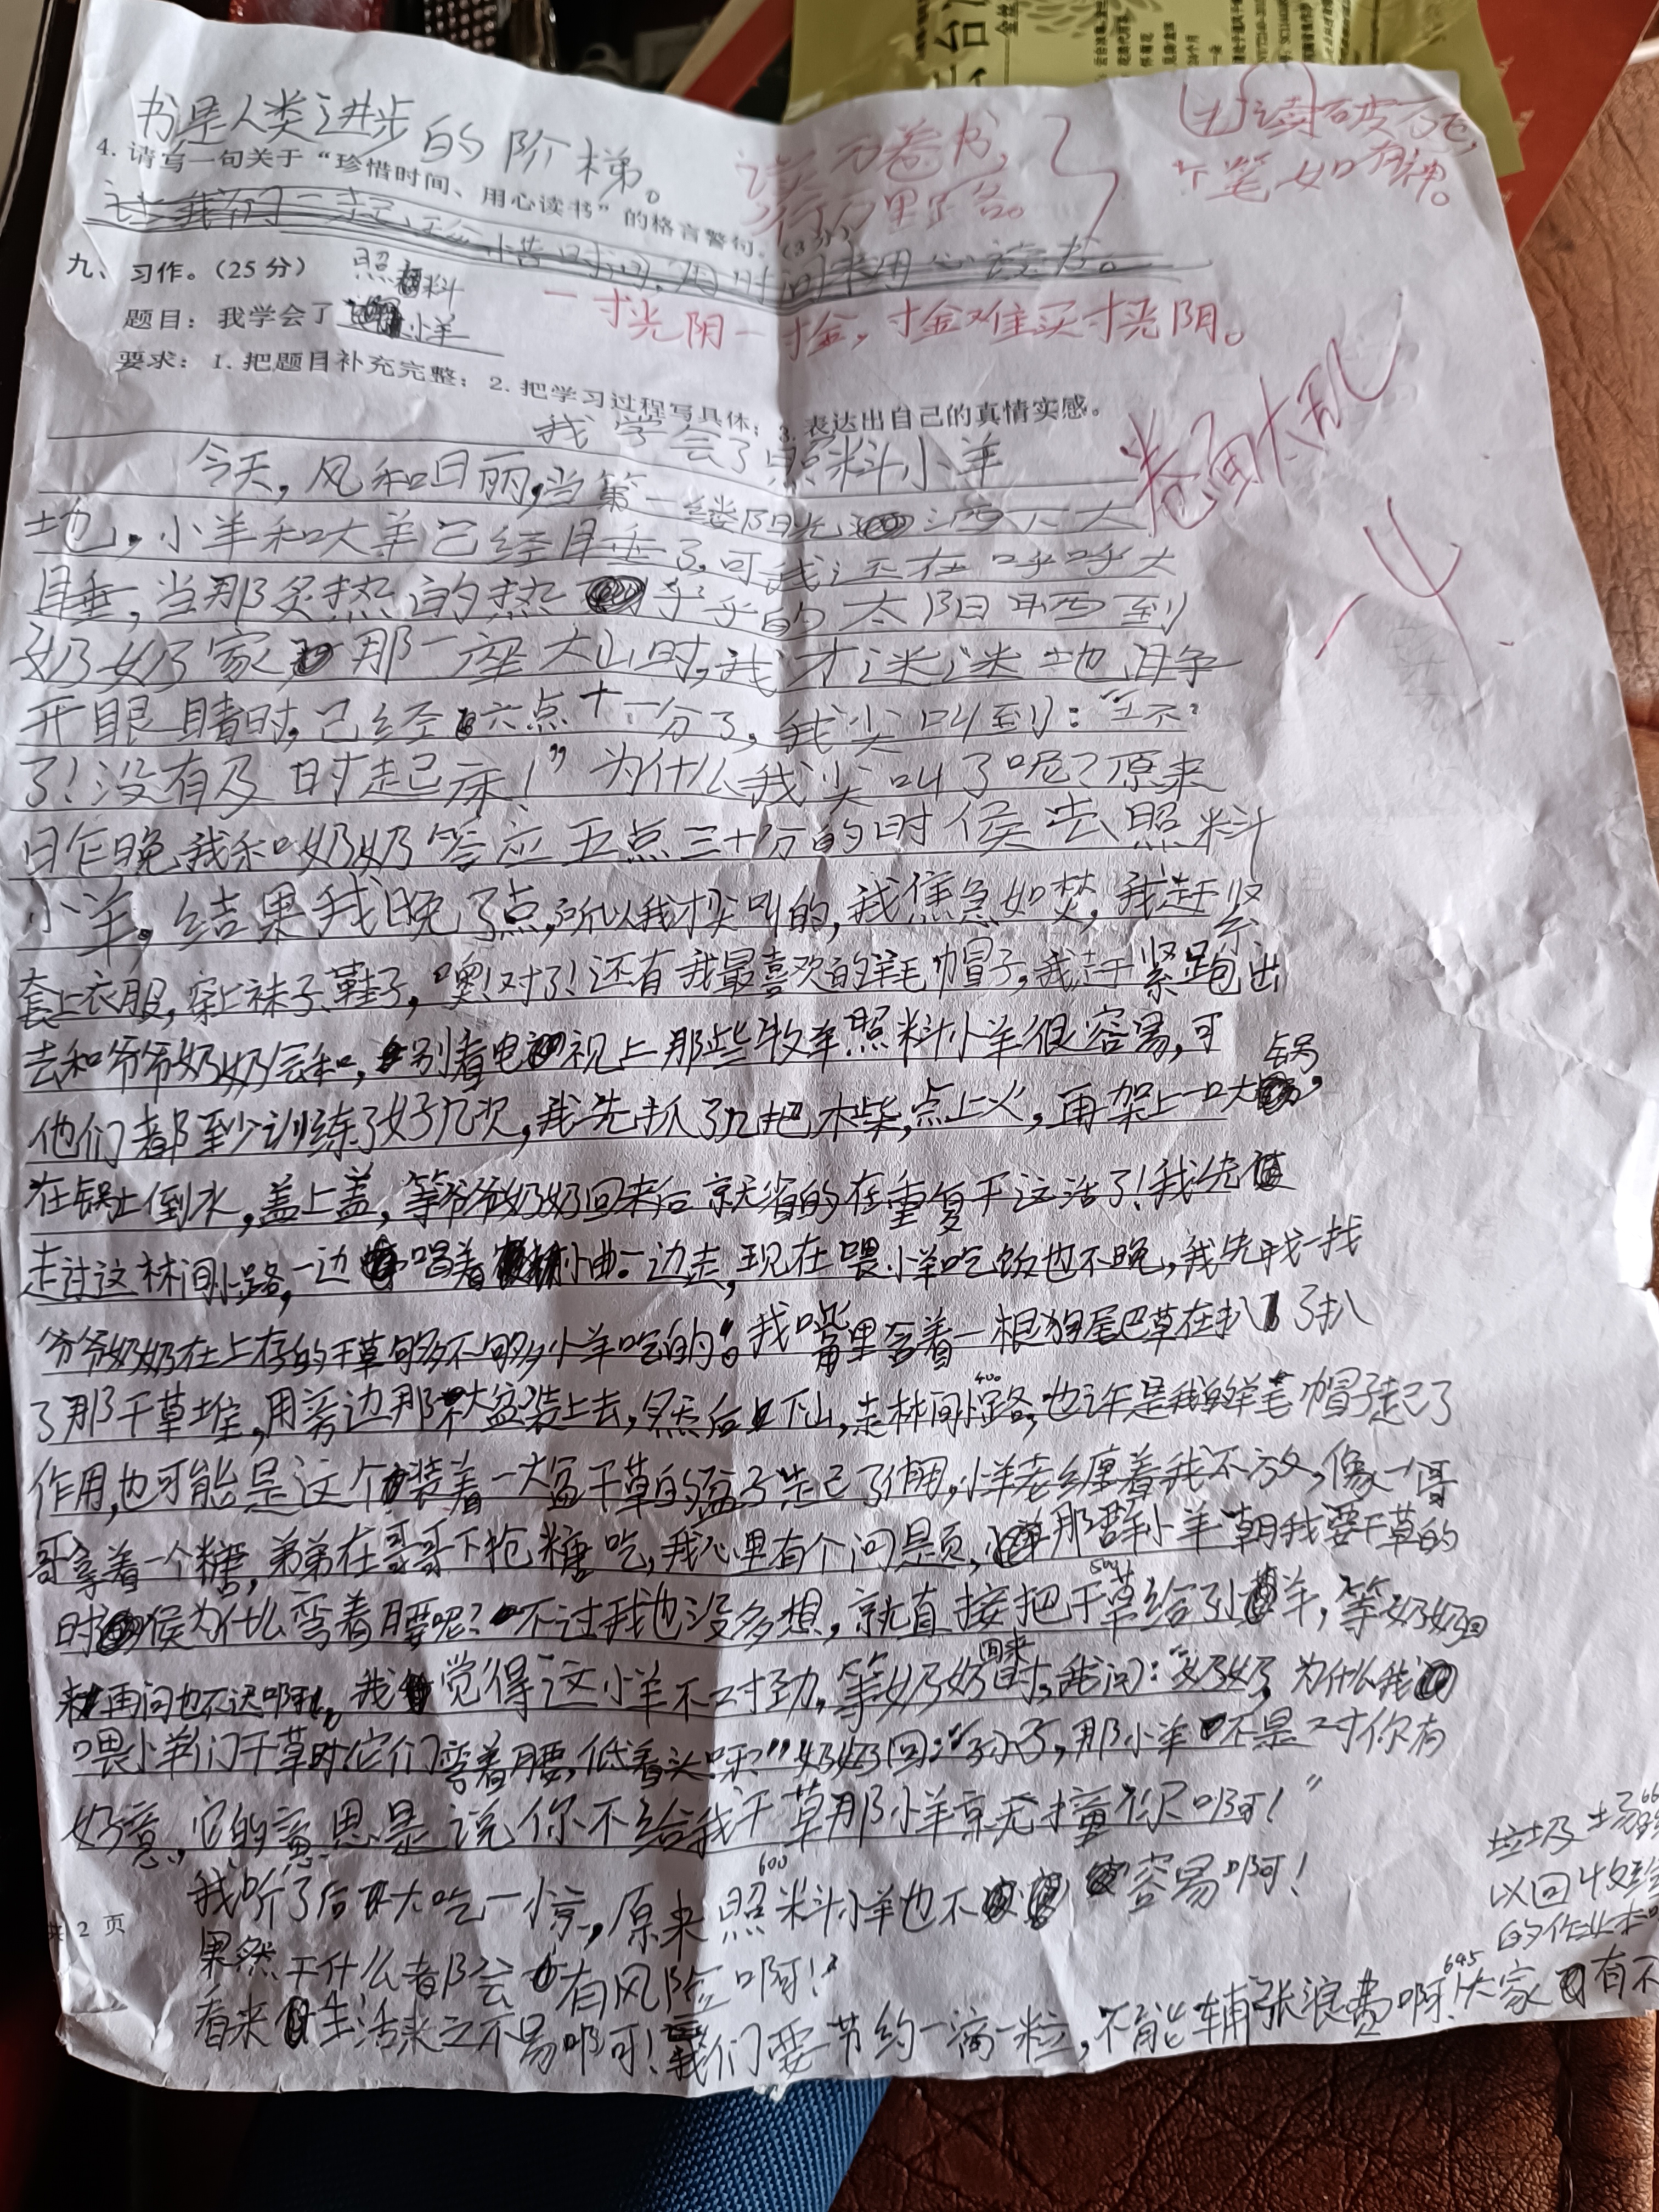 书是人类进步的阶梯。
读万卷书，
行万里路。
读破万卷，
下笔如有神。
4. 请写一句关于“珍惜时间、用心读书”的格言警句。(3分)
让我们一起珍惜时间,用时间来用心读书。
一寸光阴一寸金，寸金难买寸光阴。
九、习作。（25 分）
照料
题目：我学会了小羊
要求：1. 把题目补充完整；2. 把学习过程写具体；3. 表达出自己的真情实感。
卷面太乱
-4
我学会了照料小羊
今天，风和日丽，当第一缕阳光洒下大
地，小羊和大羊已经睡了，可我还在呼呼大
睡，当那炙热的热乎乎的太阳晒到
奶奶家那一座大山时，我才迷迷地睁
开眼睛时，已经六点十一分了，我尖叫到：“坏
了！没有及时起床！”为什么我尖叫了呢？原来
昨晚我和奶奶答应五点三十分的时侯去照料
小羊，结果我晚了点，所以我才尖叫的，我焦急如焚，我赶紧
套上衣服，穿上袜子、鞋子，噢！对了！还有我最喜欢的羊毛帽子，我赶紧跑出
去和爷爷奶奶会和，别看电视上那些牧羊照料小羊很容易，可
他们都至少训练了好几次，我先抓了几把木柴，点上火，再架上一口大锅，
在锅上倒水，盖上盖，等爷爷奶奶回来后就省的在重复干这活了！我先
走过这林间小路，一边唱着小曲一边走，现在喂小羊吃饭也不晚，我先找一找
爷爷奶奶在上存的干草够不够小羊吃的。我嘴里含着一根狗尾巴草在扒了扒
400
了那干草堆，用旁边那大盆装上去，然后下山，走林间小路，也许是我的羊毛帽子起了
作用，也可能是这个装着一大盆干草的盆子起了作用，小羊老缠着我不放，像一哥
哥拿着一个糖，弟弟在哥哥下抢糖吃，我心里有个问题，那群小羊朝我要干草的
500
时侯为什么弯着腰呢？不过我也没多想，就直接把干草给了小羊，等奶奶回
来再问也不迟啊。我觉得这小羊不对劲，等奶奶回来时，我问：“奶奶，为什么我
喂小羊们干草时它们弯着腰，低着头呀？”奶奶回：“孙子，那小羊不是对你有
好意，它的意思是说你不给我干草那小羊就无撞你啊！”
600
我听了后大吃一惊，原来照料小羊也不容易啊！
共 2 页
果然干什么都会有风险啊！
645
看来生活来之不易啊！我们要节约一滴一粒，不能铺张浪费啊！大家有不
垃圾
以回收